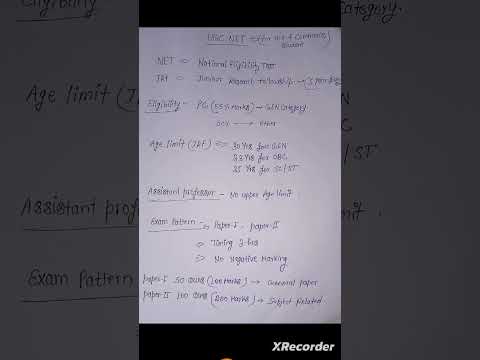 UGC NET
NET => National Eligibility Test
JRF => Junior Research Fellowship
Eligibility - PG (55% Marks) - GEN Category
50% → Other
Age limit (JRF) <=> 30 Yrs for GEN
33 Yrs for OBC
35 Yrs for SC/ST
Assistant professor - No upper Age limit.
Exam Pattern - Paper-I, paper-II
=> Timing 3 hrs
=> No Negative Marking
paper-I 50 Ques (100 Marks) → General paper
paper-II 100 Ques (200 Marks) → Subject Related
Eligibility
Category.
Age limit (JRF)
/ST
Assistant prof
Exam Pattern
XRecorder